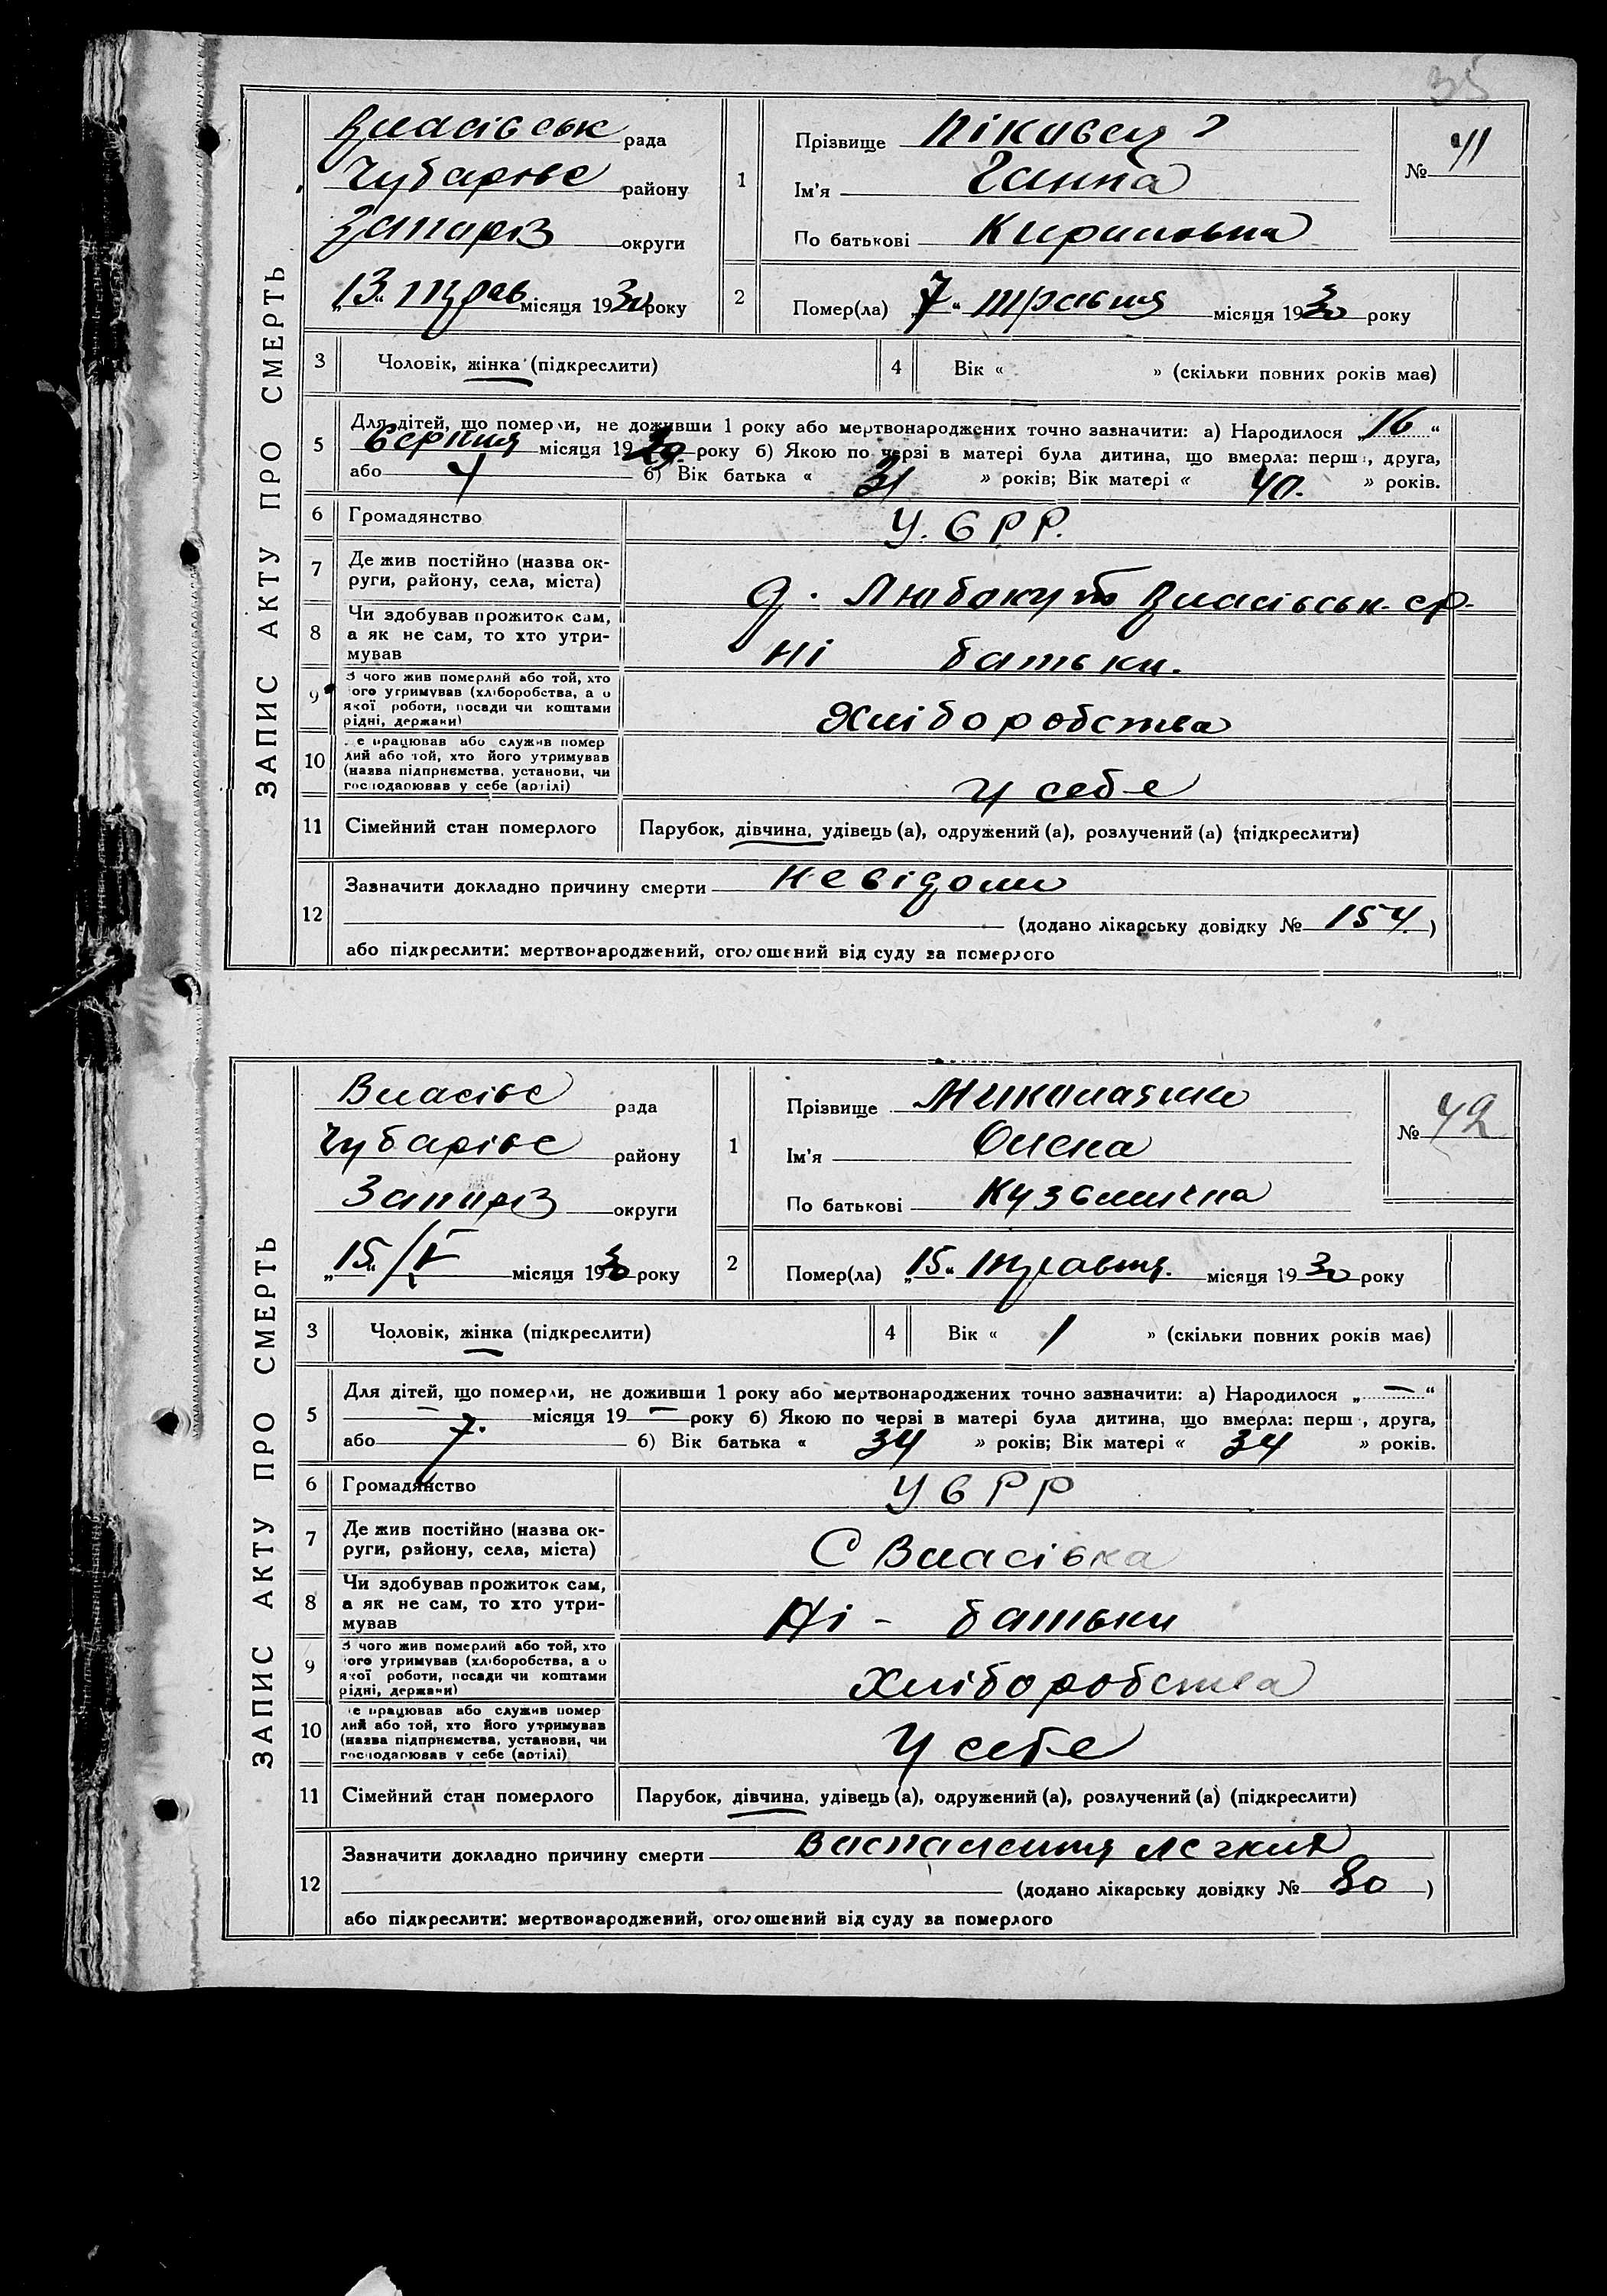 35
ЗАПИС АКТУ ПРО СМЕРТЬ
Власівськ рада
Чубарівс району
Запоріз округи
„13“ Трав місяця 1930 року
1
Прізвище
Ім'я Ганна
По батькові Кириловна
№ 41
2
Помер(ла) „7“ травня місяця 1930 року
3 Чоловік, жінка (підкреслити)
4 Вік « » (скільки повних років має)
5 Для дітей, що померли, не доживши 1 року або мертвонароджених точно зазначити: а) Народилося „16“
серпня місяця 1929 року б) Якою по черзі в матері була дитина, що вмерла: перш , друга,
або 4 б) Вік батька « 31 » років; Вік матері « 40. » років.
6 Громадянство У.С.Р.Р.
7 Де жив постійно (назва ок-
руги, району, села, міста) д. Любокут Власівськ. ср.
8 Чи здобував прожиток сам,
а як не сам, то хто утри-
мував Ні батьки.
9 З чого жив померлий або той, хто
ого утримував (хліборобства, а о
якої роботи, посади чи коштами
рідні, держави) Хліборобства
10 е працював або служив помер
лий або той, хто його утримував
(назва підприємства, установи, чи
господарював у себе (артілі) У себе
11 Сімейний стан померлого Парубок, дівчина, удівець (а), одружений (а), розлучений (а) (підкреслити)
12 Зазначити докладно причину смерти Невідомо
(додано лікарську довідку № 154.)
або підкреслити: мертвонароджений, оголошений від суду за померлого
ЗАПИС АКТУ ПРО СМЕРТЬ
Власівс рада
Чубарівс району
Запоріз округи
„15“ /V місяця 1930 року
1
Прізвище
Ім'я Олена
По батькові Кузьмична
№ 42
2
Помер(ла) „15“ Травня. місяця 1930 року
3 Чоловік, жінка (підкреслити)
4 Вік « 1 » (скільки повних років має)
5 Для дітей, що померли, не доживши 1 року або мертвонароджених точно зазначити: а) Народилося „—“
— місяця 19— року б) Якою по черзі в матері була дитина, що вмерла: перш , друга,
або 7. б) Вік батька « 34 » років; Вік матері « 34 » років.
6 Громадянство УСРР
7 Де жив постійно (назва ок-
руги, району, села, міста) С Власівка
8 Чи здобував прожиток сам,
а як не сам, то хто утри-
мував Ні - батьки
9 З чого жив померлий або той, хто
ого утримував (хліборобства, а о
якої роботи, посади чи коштами
рідні, держави) Хліборобства
10 е працював або служив помер
лий або той, хто його утримував
(назва підприємства, установи, чи
господарював у себе (артілі) У себе
11 Сімейний стан померлого Парубок, дівчина, удівець (а), одружений (а), розлучений (а) (підкреслити)
12 Зазначити докладно причину смерти Воспалення легких
(додано лікарську довідку № 80)
або підкреслити: мертвонароджений, оголошений від суду за померлого